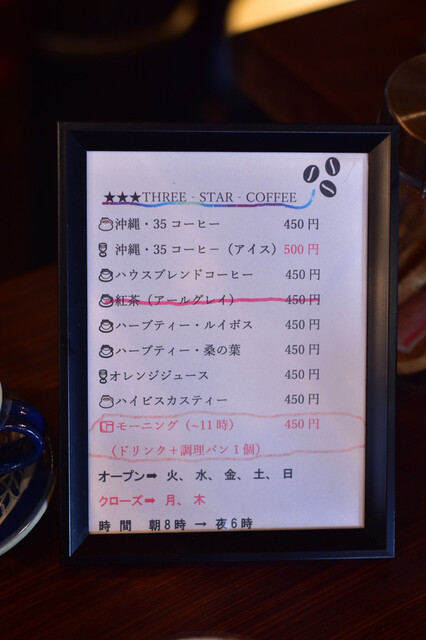 ★★★THREE‐STAR‐COFFEE
沖縄・35コーヒー 450円
沖縄・35コーヒー（アイス）500円
ハウスブレンドコーヒー 450円
紅茶（アールグレイ） 450円
ハーブティー・ルイボス 450円
ハーブティー・桑の葉 450円
オレンジジュース 450円
ハイビスカスティー 450円
モーニング（~11時） 450円
（ドリンク＋調理パン１個）
オープン➡ 火、水、金、土、日
クローズ➡ 月、木
時間 朝8時 → 夜6時